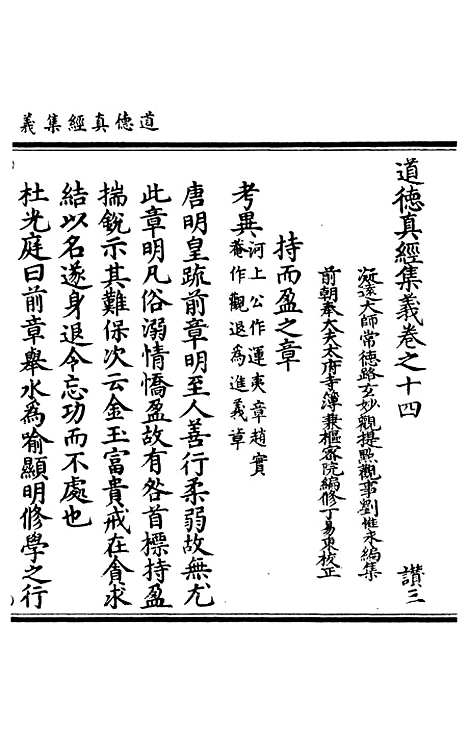 道德真經集義
道德真經集義卷之十四 讃三
凝遠大師常德路玄妙觀提點觀事劉惟永編集
前朝奉大夫太府寺簿兼樞密院編修丁易東校正
持而盈之章
考異河上公作運夷章趙實
菴作觀退為進義章
唐明皇疏前章明至人善行柔弱故無尤
此章明凡俗溺情憍盈故有咎首摽持盈
揣銳示其難保次云金玉富貴戒在貪求
結以名遂身退令忘功而不處也
杜光庭曰前章舉水為喻顯明修學之行